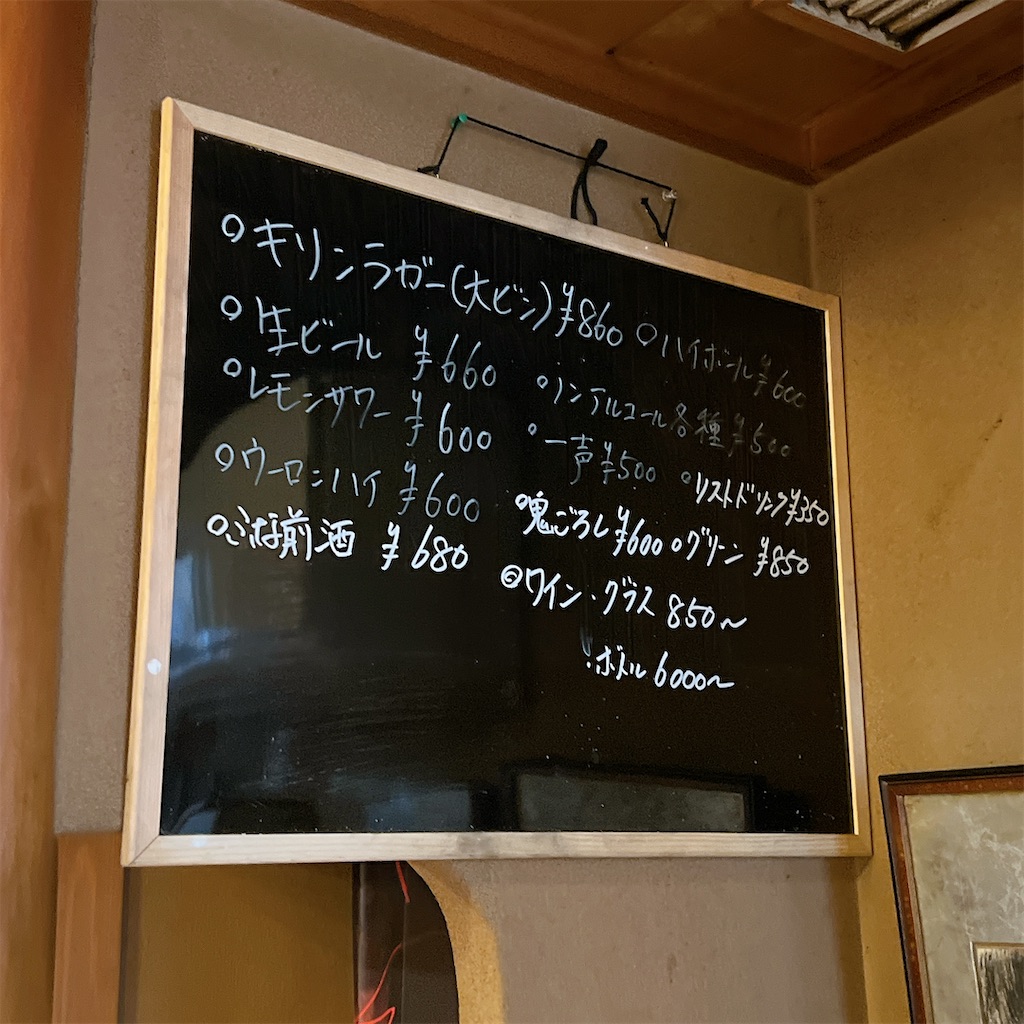 ○キリンラガー(大ビン) ¥860
○生ビール ¥660
○レモンサワー ¥600
○ウーロンハイ ¥600
○ご沽前酒 ¥680
○ハイボール ¥600
○ノンアルコール各種 ¥500
○一声 ¥500
○ソストドリンク ¥350
○鬼ごろし ¥600
○グリーン ¥850
◎ワイン・グラス 850〜
ボトル 6000〜